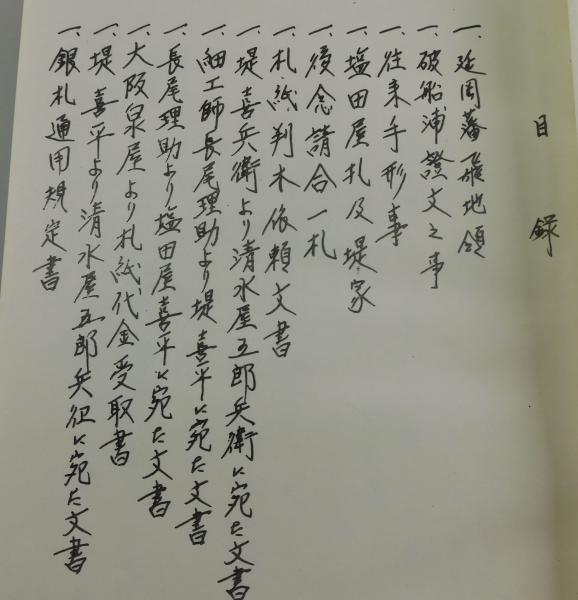 目録
一、延岡藩飛地領
一、破船浦證文之事
一、往来手形事
一、塩田屋札及堤家
一、後念請合一札
一、札紙判木依頼文書
一、堤喜兵衛より清水屋五郎兵衛に宛た文書
一、細工師長尾理助より堤喜平に宛た文書
一、長尾理助より塩田屋喜平に宛た文書
一、大阪泉屋より札紙代金受取書
一、堤喜平より清水屋五郎兵衛に宛た文書
一、銀札通用規定書